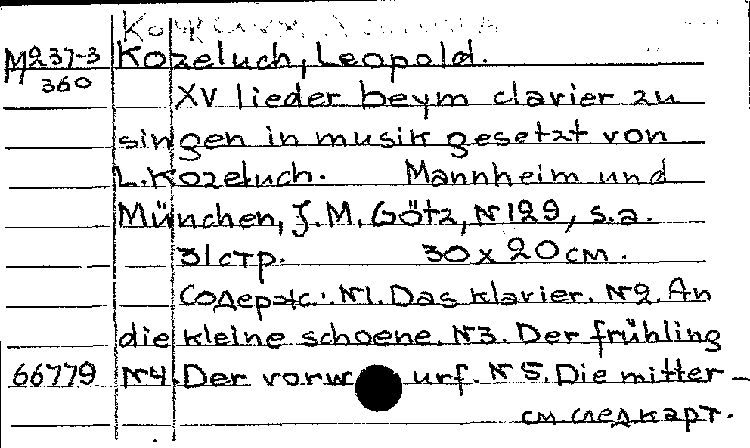 М 237-3 Kozeluch, Leopold.
360
XV lieder beym clavier zu
singen in musik gesetzt von
L. Kozeluch. Mannheim und
München, J. M. Götz, № 129, s.a.
31 стр. 30 x 20 см.
Содерж.: №1. Das klavier. №2. An
die kleine schoene. №3. Der frühling
66779 №4. Der vorwurf. №5. Die mitter-
см след карт.